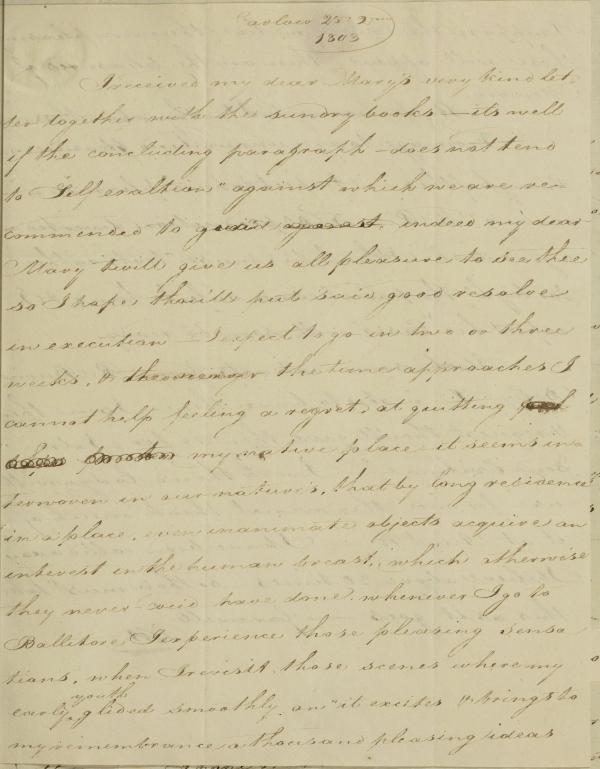 Carlow 23rd 9mo
1803
I received my dear Mary's very kind let-
ter together with the sundry books — its well
if the concluding paragraph does not tend
to "Self exaltion" against which we are re-
commended to guard against, indeed my dear
Mary twill give us all pleasure to see thee
so I hope thou'lt put said good resolve
in execution — I expect to go in two or three
weeks, & the nearer the time approaches I
cannot help feeling a regret, at quitting
my native place it seems in-
terwoven in our nature's, that by long residence
in a place, even inanimate objects acquire an
interest in the human breast, which otherwise
they never wd have done. whenever I go to
Ballitore I experience those pleasing sensa
tions, when I revisit those scenes where my
early youth glided smoothly on "it excites & brings to
my remembrance a thousand pleasing ideas